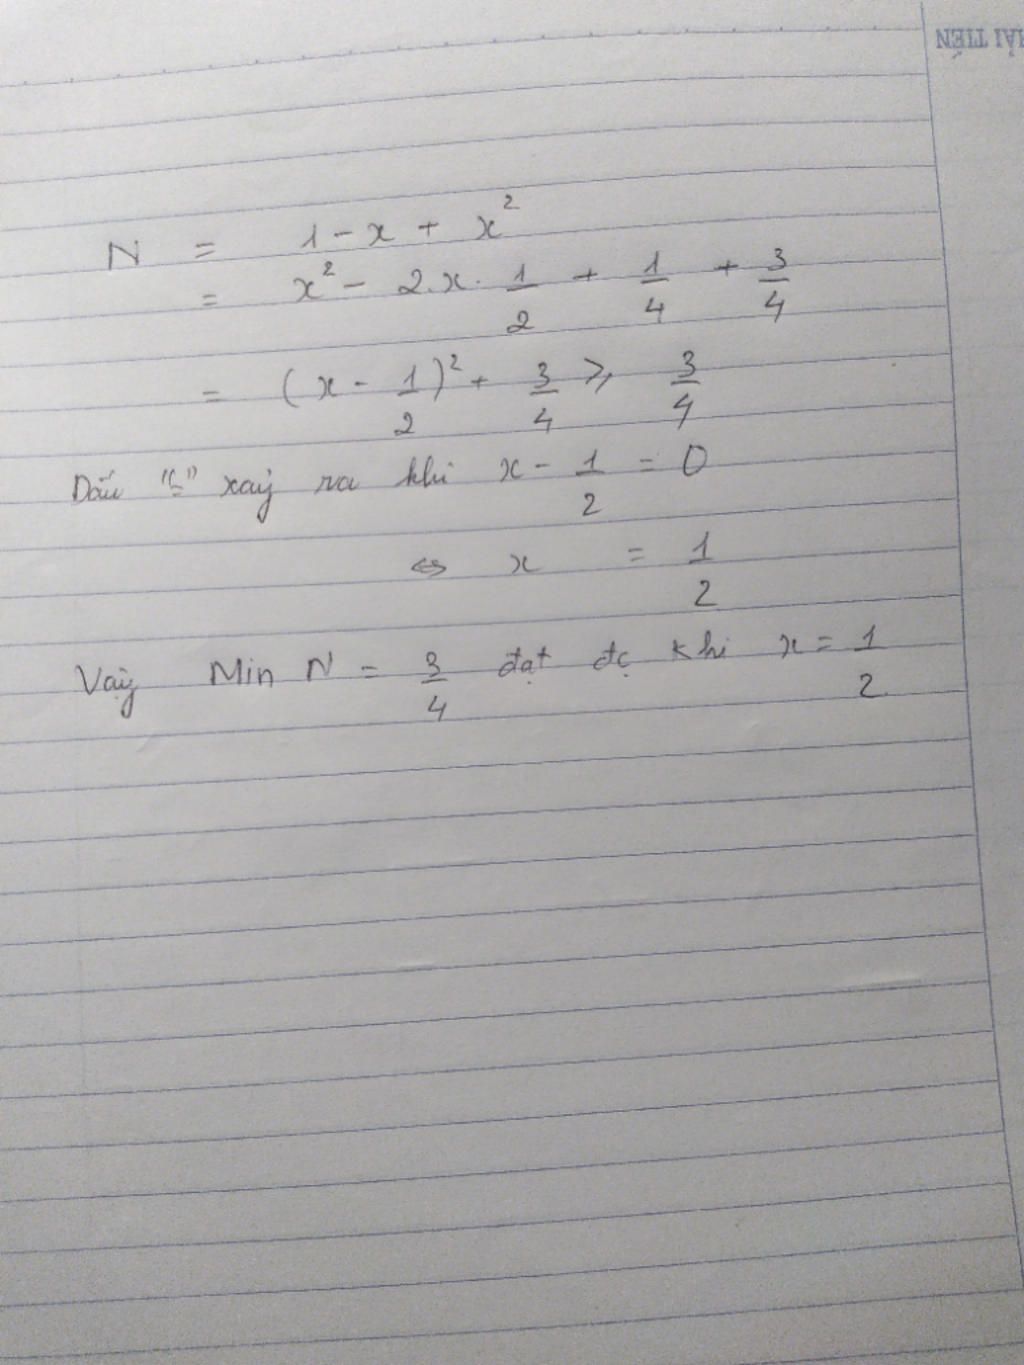 HẢI TIẾN
N = 1 - x + x²
= x² - 2.x. 1/2 + 1/4 + 3/4
= (x - 1/2)² + 3/4 ⩾ 3/4
Dấu "=" xảy ra khi x - 1/2 = 0
⇔ x = 1/2
Vậy Min N = 3/4 đạt đc khi x = 1/2